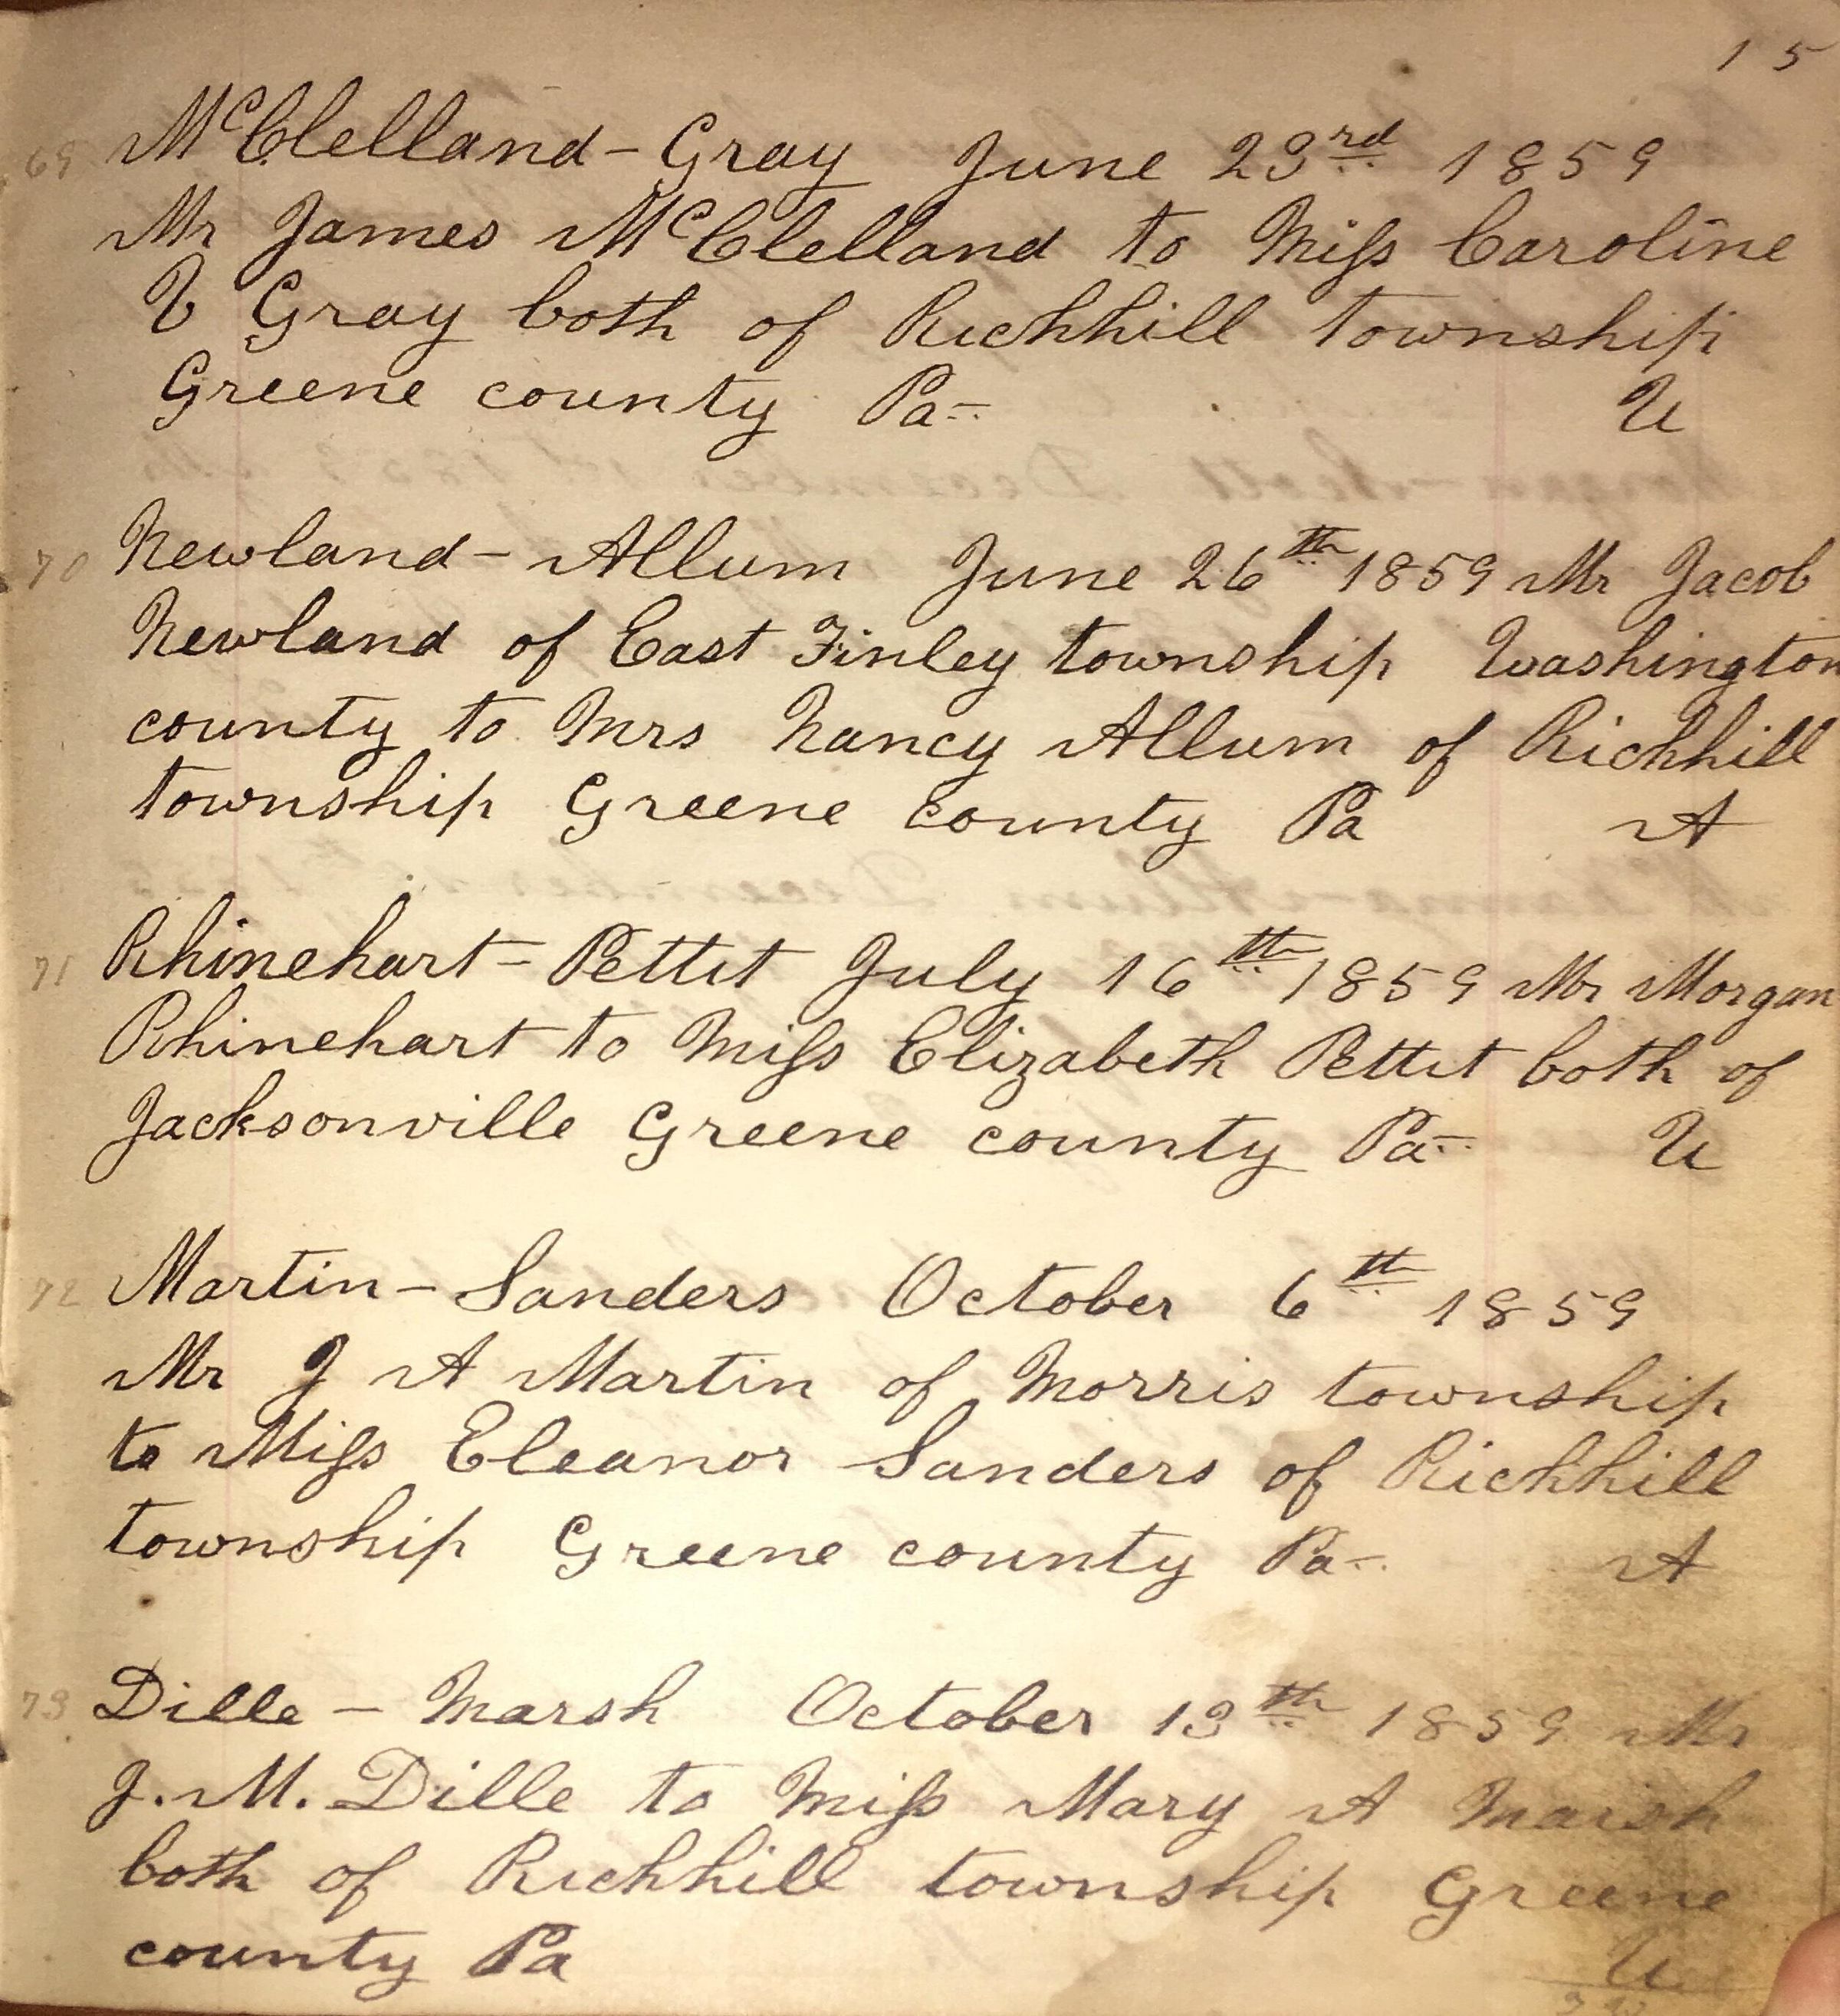 15
69 McClelland - Gray June 23rd 1859
Mr James McClelland to Miss Caroline
V Gray both of Richhill township
Greene county Pa-
U
70 Newland - Allum June 26th 1859 Mr Jacob
Newland of East Finley township Washington
county to Mrs Nancy Allum of Richhill
township Greene county Pa A
71 Rhinehart - Pettit July 16th 1859 Mr Morgan
Rhinehart to Miss Elizabeth Pettit both of
Jacksonville Greene county Pa- U
72 Martin - Sanders October 6th 1859
Mr J A Martin of Morris township
to Miss Eleanor Sanders of Richhill
township Greene county Pa- A
73 Dille - Marsh October 13th 1859 Mr
J. M. Dille to Miss Mary A Marsh
both of Richhill township Greene
county Pa U